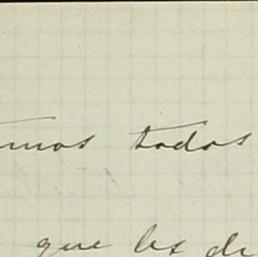 mos todos
que les di